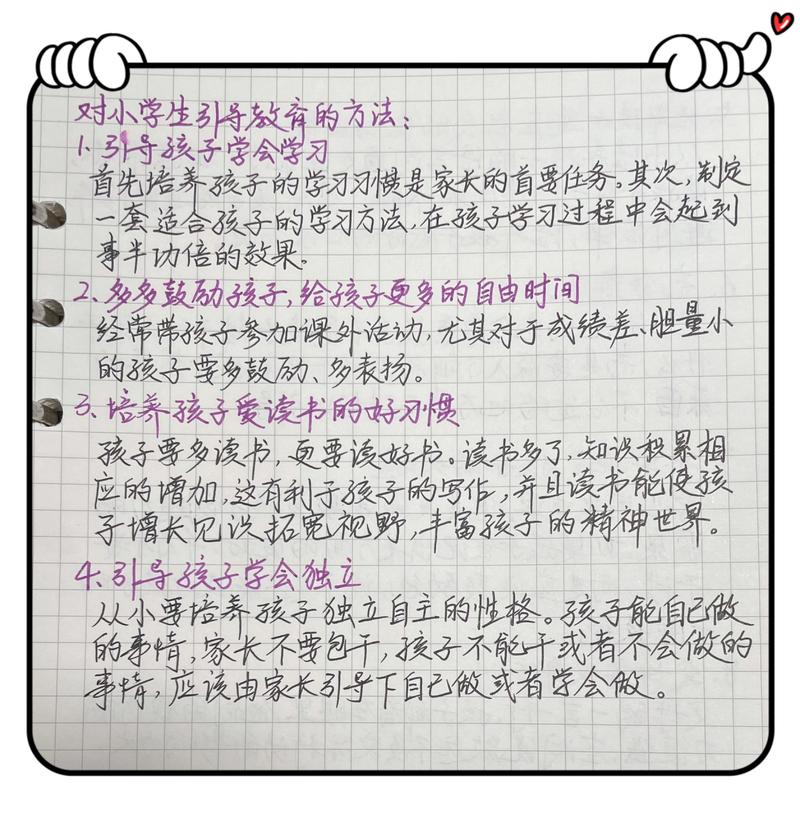 对小学生引导教育的方法：
1. 引导孩子学会学习
首先培养孩子的学习习惯是家长的首要任务。其次，制定
一套适合孩子的学习方法，在孩子学习过程中会起到
事半功倍的效果。
2、多多鼓励孩子，给孩子更多的自由时间
经常带孩子参加课外活动，尤其对于成绩差、胆量小
的孩子要多鼓励、多表扬。
3、培养孩子爱读书的好习惯
孩子要多读书，更要读好书。读书多了，知识积累相
应的增加，这有利于孩子的写作，并且读书能使孩
子增长见识拓宽视野，丰富孩子的精神世界。
4、引导孩子学会独立
从小要培养孩子独立自主的性格。孩子能自己做
的事情，家长不要包干，孩子不能干或者不会做的
事情，应该由家长引导下自己做或者学会做。